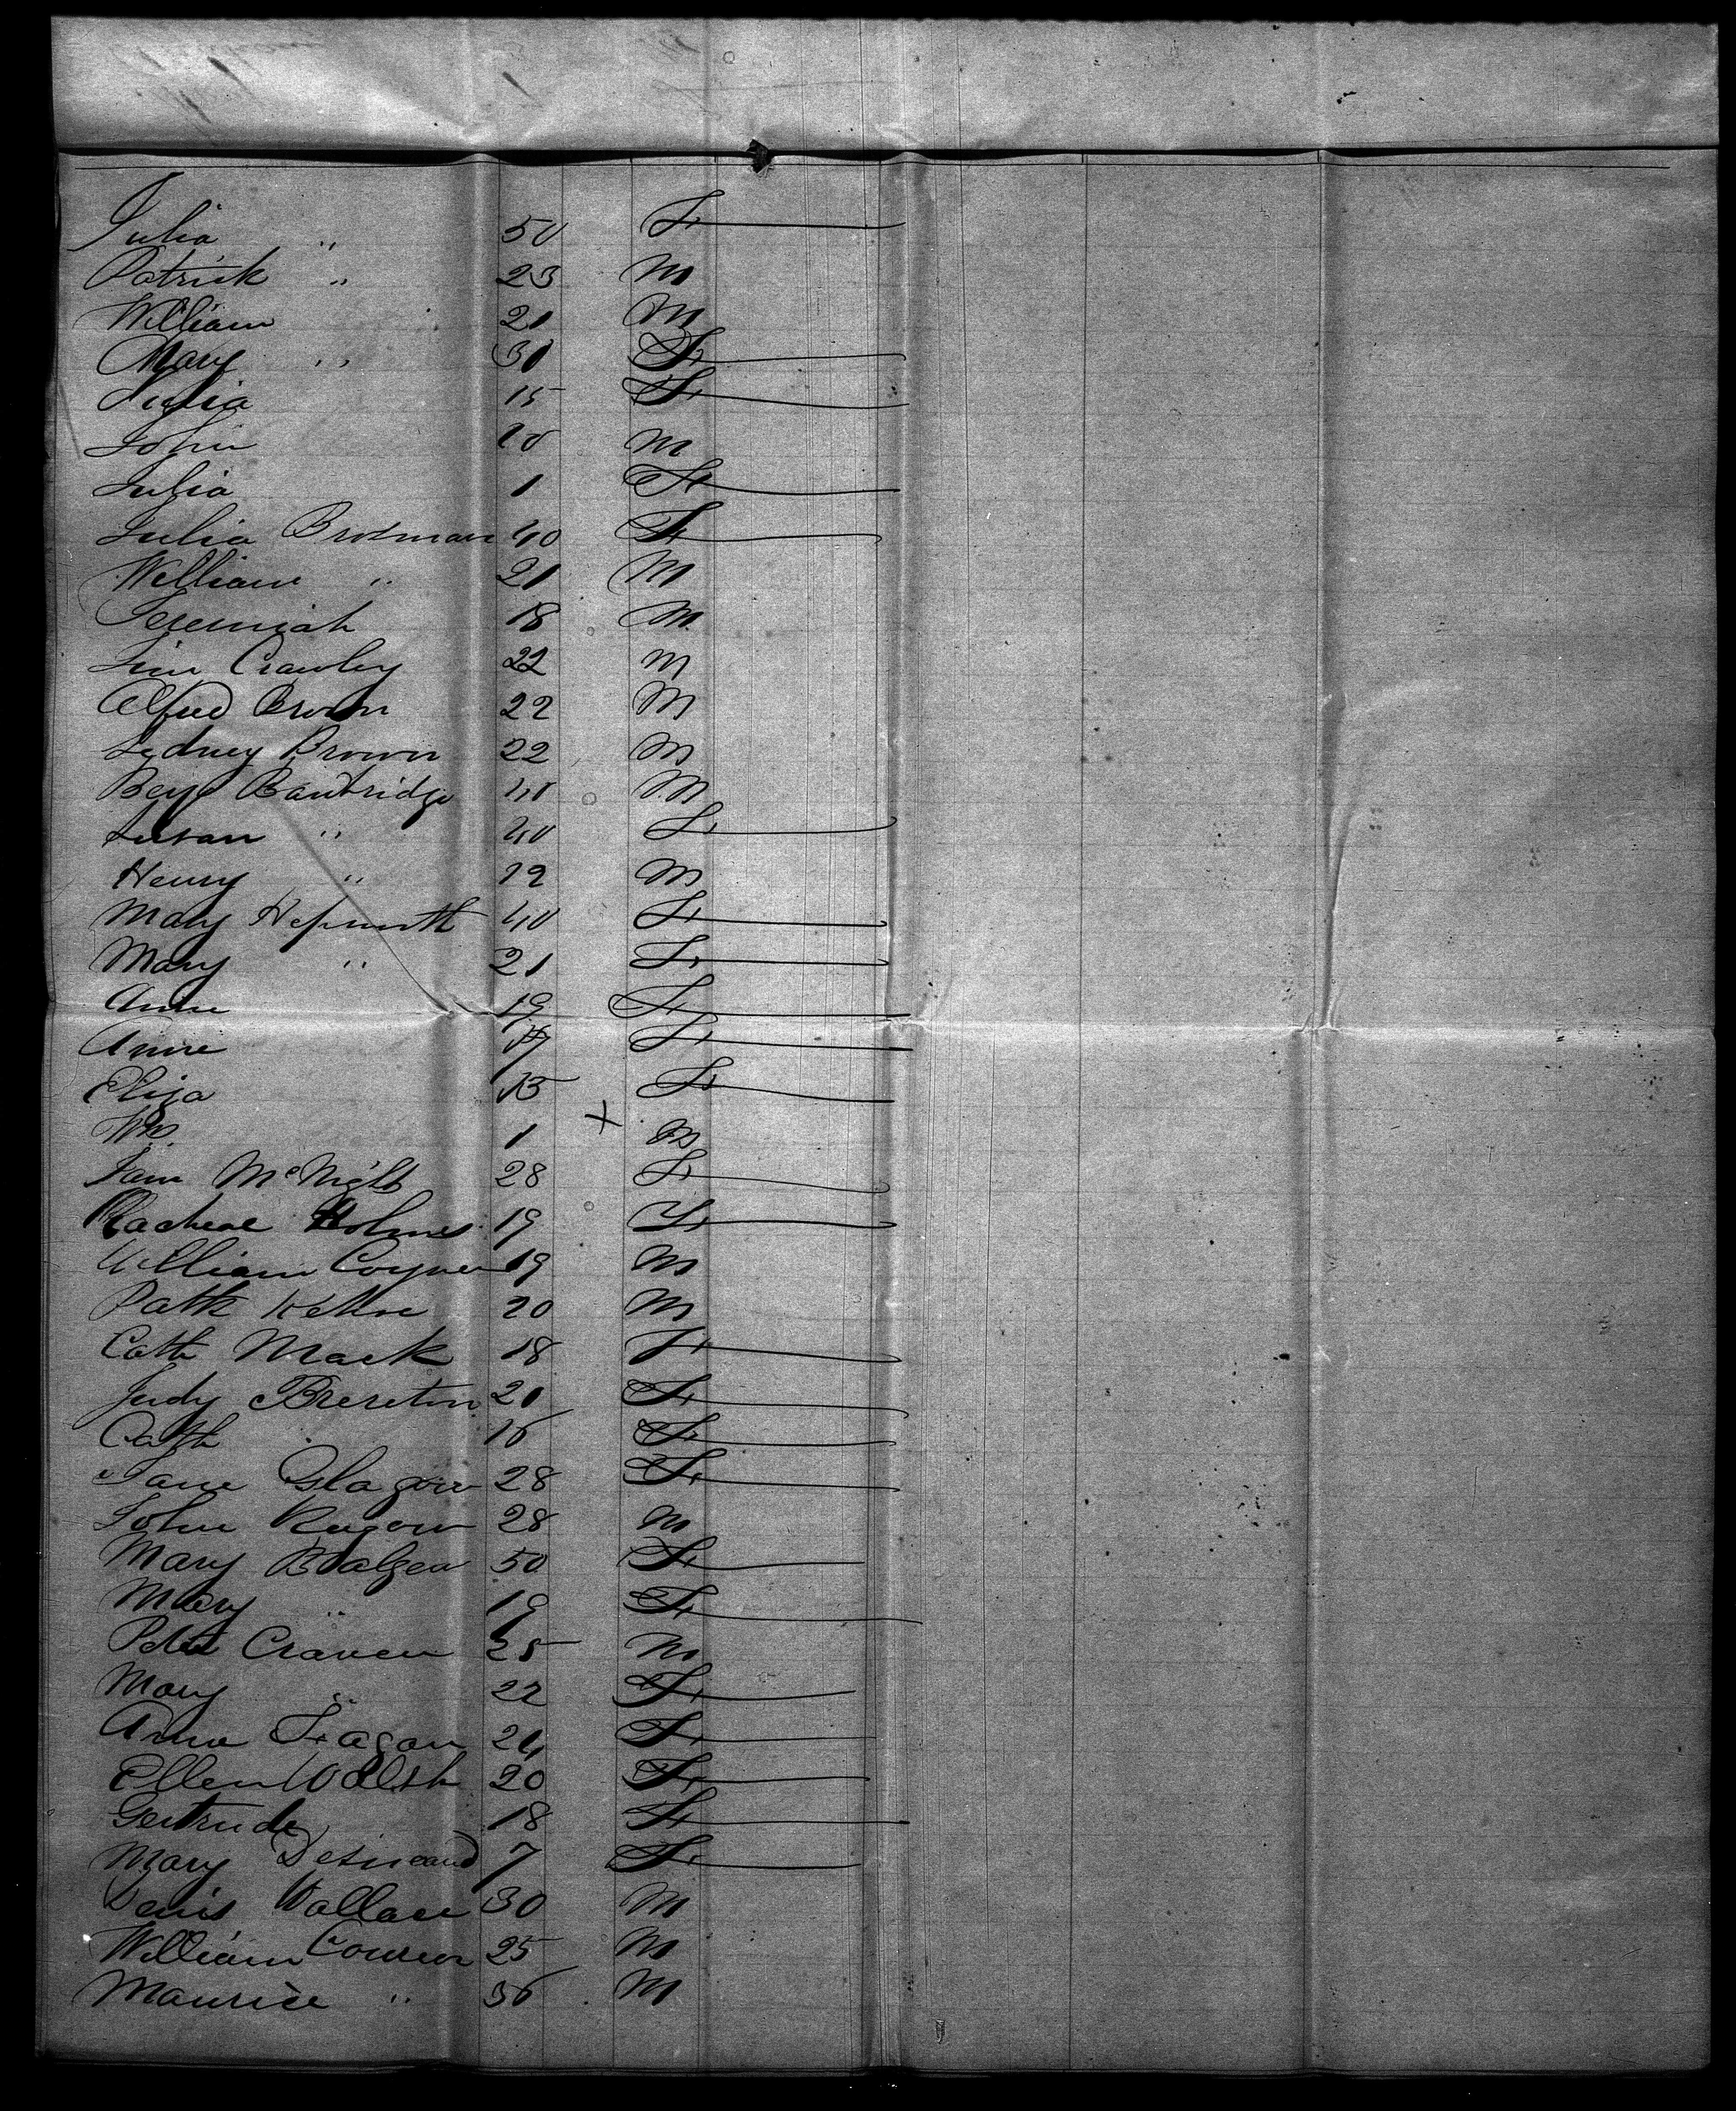 Julia " 50 F
Patrick " 23 M
William 21 M
Mary " 30 F
Julia 15 F
John 10 M
Julia 1 F
Julia Brosnan 40 F
William " 21 M
Jeremiah 18 M
Jim Crawley 22 M
Alfred Brown 22 M
Sydney Brown 22 M
Benj Banbridge 40 M
Susan " 40 F
Henry " 12 M
Mary Hepworth 40 F
Mary " 21 F
Anne 19 F
Annie 17 F
Eliza 15 F
Wm 1 + M
Jane McNight 28 F
Racheal Holmes 19 F
William Coyne 19 M
Patk 20 M
Cath Mack 18 F
Judy Brereton 20 F
Cath 16 F
Jane Glagow 28 F
John 28 M
Mary 50 F
Mary " 19 F
Peter Craven 25 M
Mary " 22 F
Anne Fagan 24 F
Ellen Walsh 20 F
Gertrude 18 F
Mary 7 F
Denis Wallace 30 M
William 25 M
Maurice " 36 M